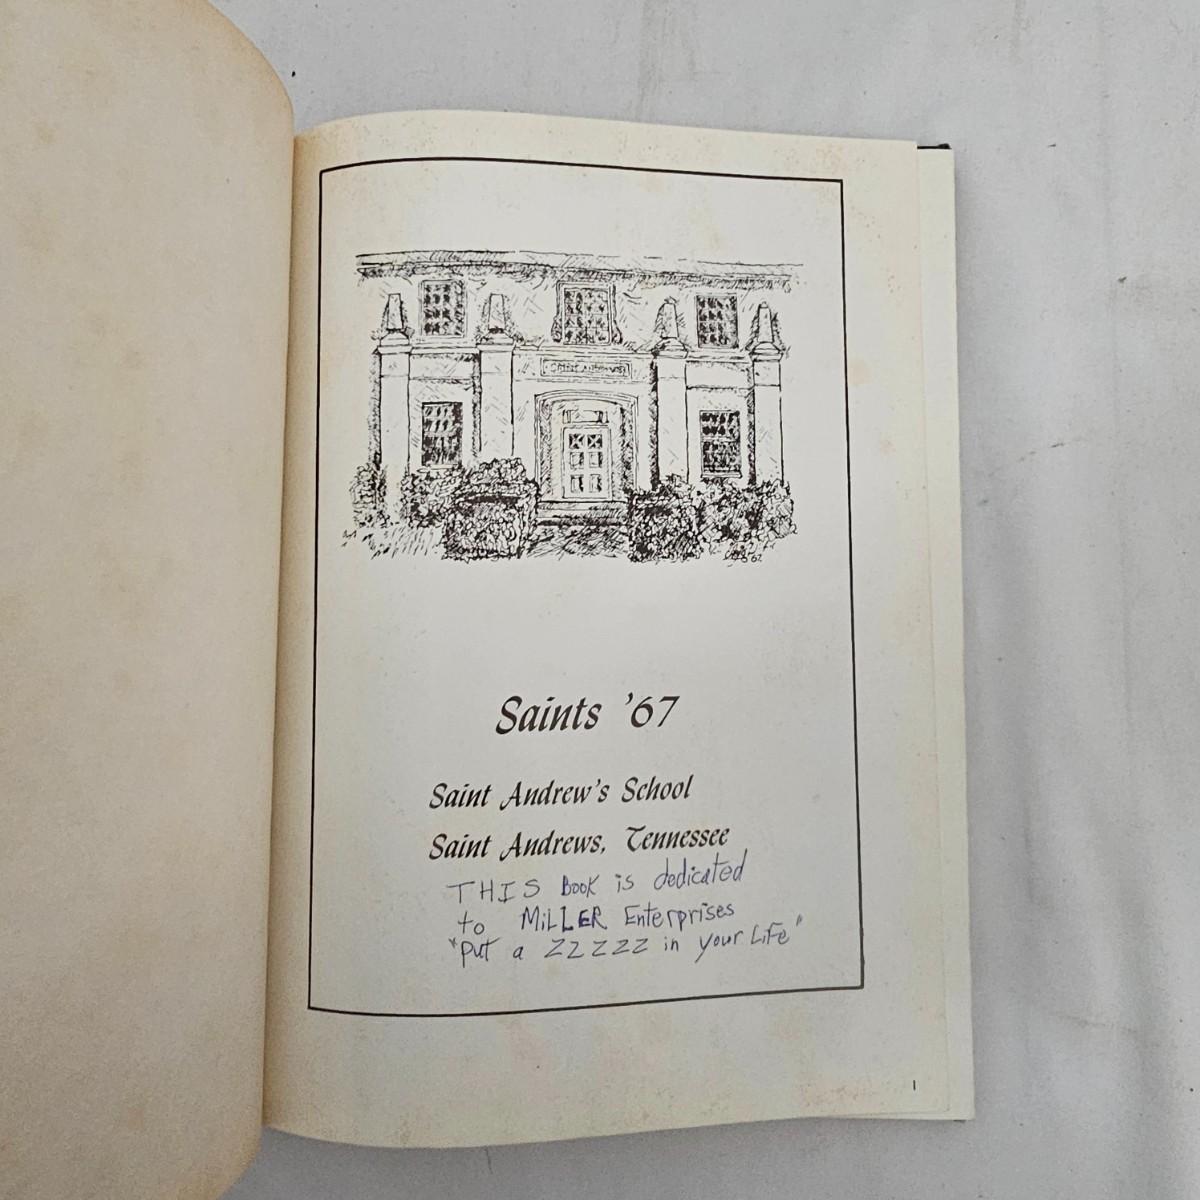 SAINT ANDREWS
Saints '67
Saint Andrew's School
Saint Andrews, Tennessee
THIS Book is dedicated
to MiLLER Enterprises
"put a ZZZZZ in your LiFe"
1